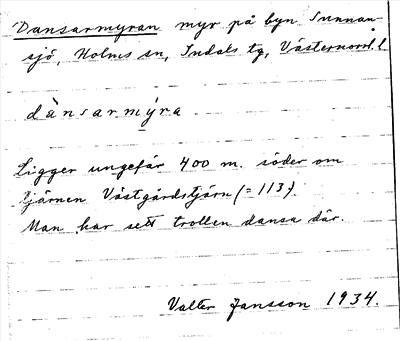 Dansarmyran myr på byn Sunnan-
sjö, Holms sn, Indals tg, Västernorrl. l.
dànsarmy̆ra
Ligger ungefär 400 m. söder om
tjärnen Västgårdstjärn (= 113).
Man har sett trollen dansa där.
Valter Jansson 1934.